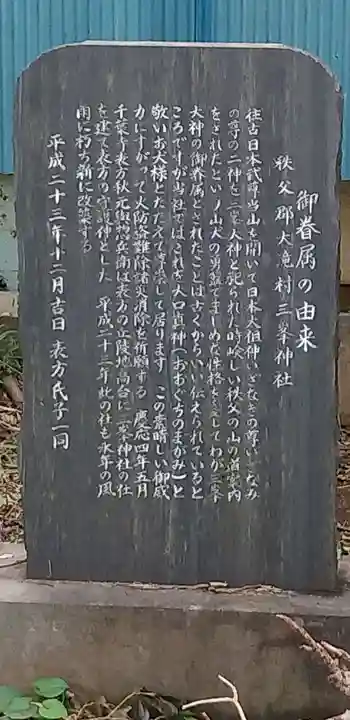 御眷属の由来
秩父郡大滝村三峯神社
往古日本武尊当山を開いて日本大祖神いざなぎの尊いざなみ
の尊の二神を三峯大神と祀られた時嶮しい秩父の山の道案内
をされたという山犬の勇猛でまじめな性格を愛してわが三峯
大神の御眷属とされたことは古くからいい伝えられていると
ころですが当社ではこれを大口真神(おおぐちのまがみ)と
敬いお犬様とたたえて尊崇して居ります この素晴しい御威
力にすがって火防盗難除諸災消除を祈願する 慶応四年五月
千葉寺表方秋元與惣兵衛は表方の丘陵地高台に三峯神社の社
を建て表方の守護神とした 平成二十三年此の社も永年の風
雨に朽ち新に改築する
平成二十三年十二月吉日 表方氏子一同